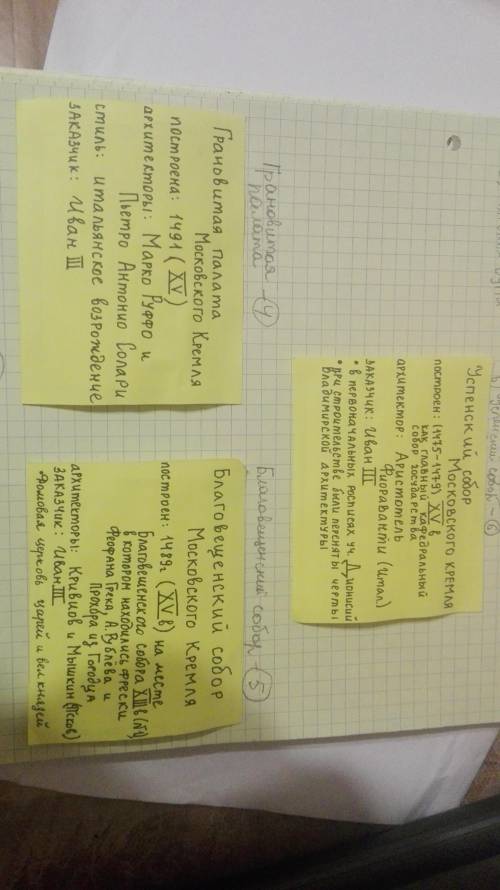 Успенский собор – 6
Успенский собор
Московского кремля
построен: (1475-1479) XV в
как главный кафедральный
собор государства
архитектор: Аристотель
Фиораванти (итал)
заказчик: Иван III
• в первоначальных росписях уч. Дионисий
• при строительстве были переняты черты
Владимирской архитектуры
Грановитая – 4
палата
Грановитая палата
Московского Кремля
построена: 1491 (XV)
архитекторы: Марко Руффо и
Пьетро Антонио Солари
стиль: итальянское возрождение
заказчик: Иван III
Благовещенский собор – 5
Благовещенский собор
Московского Кремля
построен: 1489г (XVв) на месте
Благовещенского собора XIIIв (№1)
в котором находились фрески
Феофана Грека, А. Рублёва и
Прохора из Городца
архитекторы: Кривцов и Мышкин (Псков)
заказчик: Иван III
домовая церковь царей и вел князей